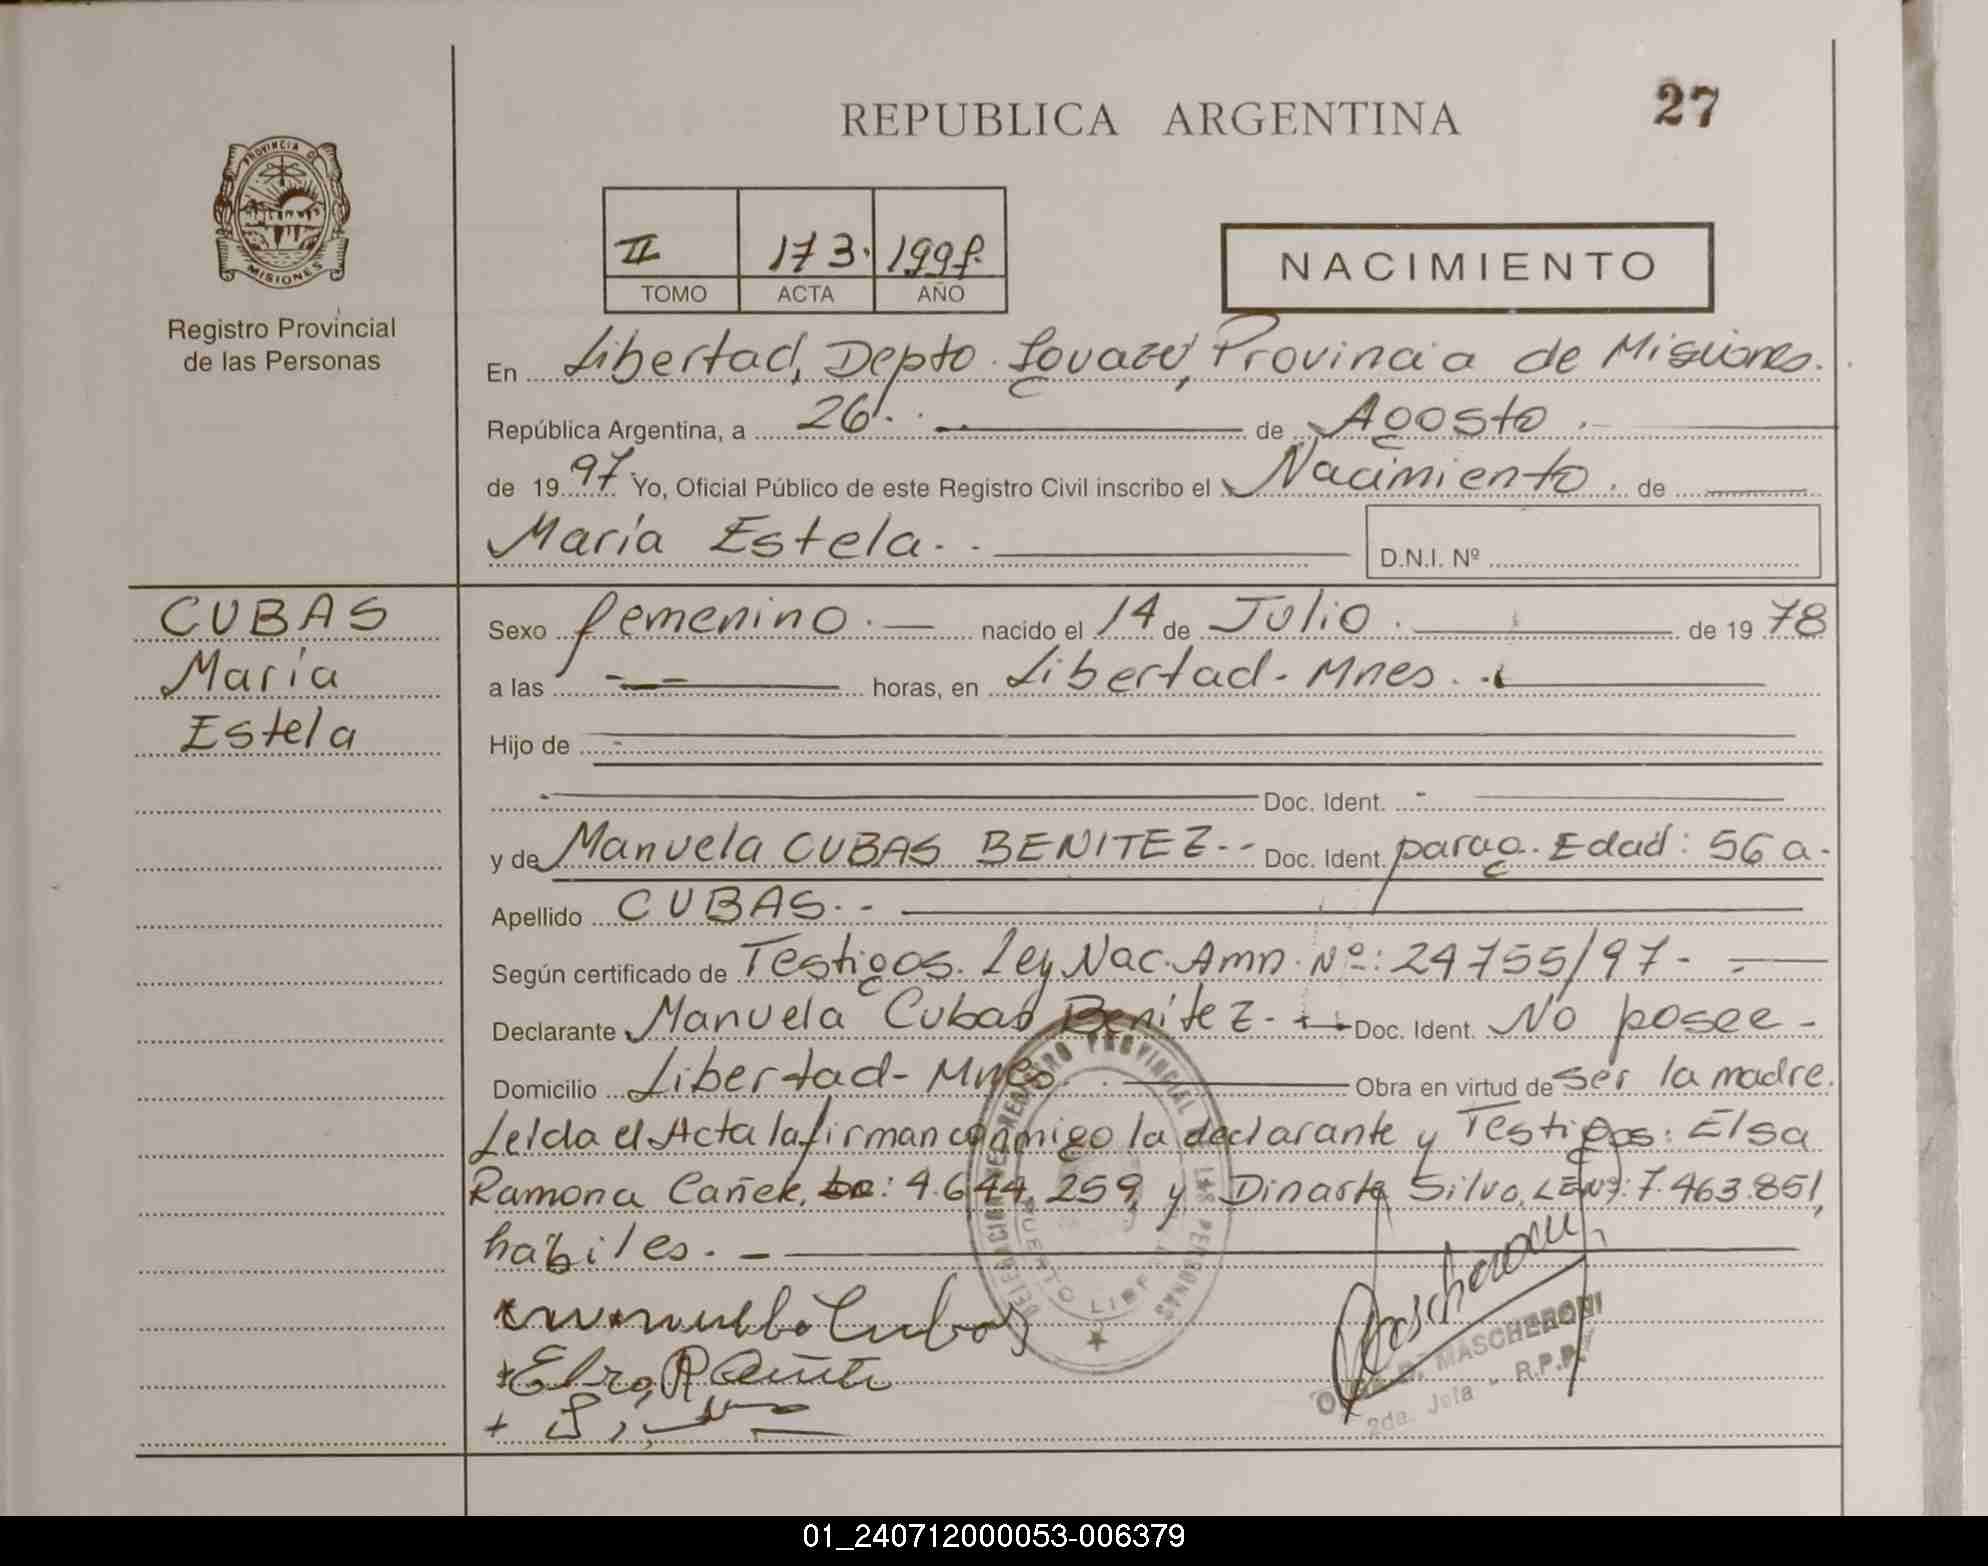 REPUBLICA ARGENTINA
27
PROVINCIA DE
MISIONES
Registro Provincial
de las Personas
II 173. 1997.
TOMO ACTA AÑO
NACIMIENTO
En Libertad, Depto. Iguazú, Provincia de Misiones.
República Argentina, a 26. de Agosto.
de 1997. Yo, Oficial Público de este Registro Civil inscribo el Nacimiento. de
María Estela.
D.N.I. Nº
CUBAS
María
Estela
Sexo femenino. nacido el 14 de Julio. de 1978
a las horas, en Libertad - Mnes.
Hijo de
Doc. Ident.
y de Manuela CUBAS BENITEZ. Doc. Ident. parag. Edad: 56 a.
Apellido CUBAS.
Según certificado de Testigos. Ley Nac. Amn. Nº: 24755/97.
Declarante Manuela Cubas Benítez. Doc. Ident. No posee
Domicilio Libertad - Mnes. Obra en virtud de ser la madre.
Leída el Acta la firman conmigo la declarante y Testigos: Elsa
Ramona Cañete, 4.644.259, y Dinarte Silva, 7.463.851,
hábiles.
DELEGACION REGISTRO PROVINCIAL DE LAS PERSONAS
PUERTO LIBERTAD
Manuela Cubas
Elsa R Cañete
Mascheroni
D. MASCHERONI
2da. Jefa - R.P.P.
01_240712000053-006379